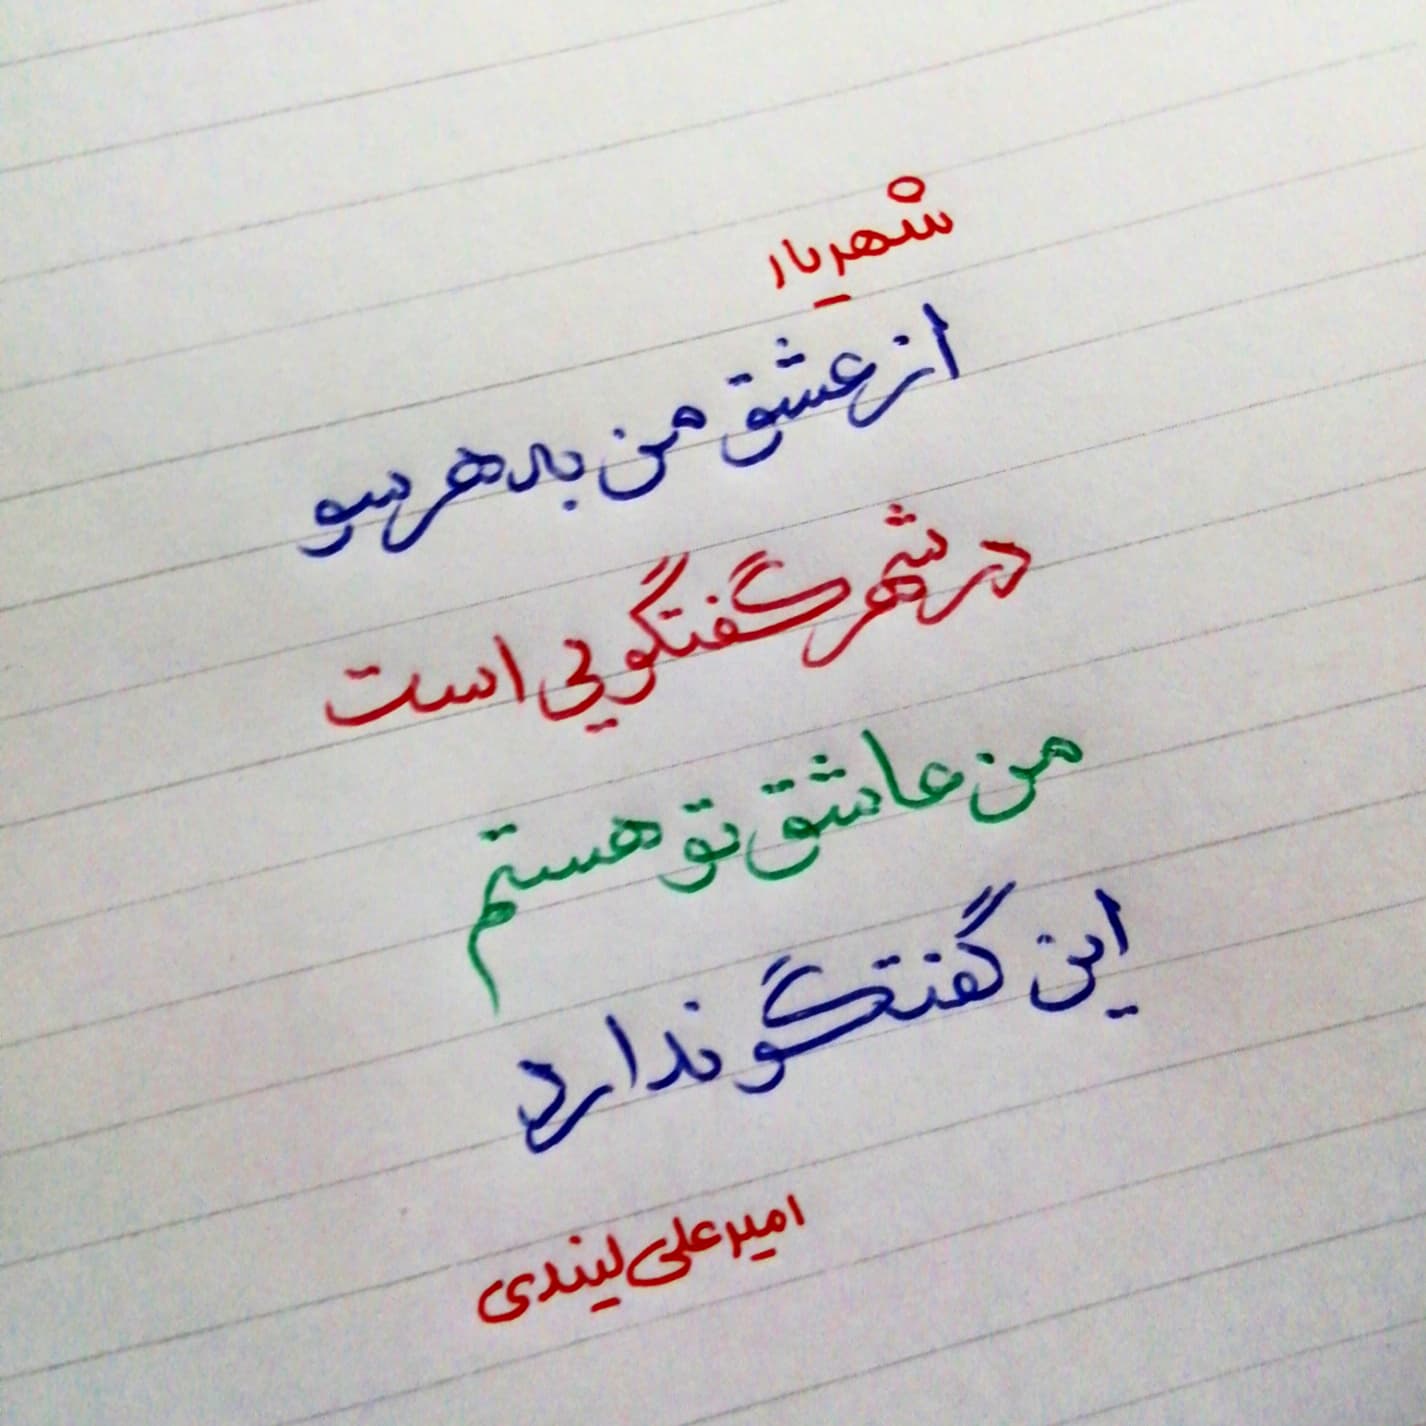 شهریار
از عشق من به هر سو
در شهر گفتگویی است
من عاشق تو هستم
این گفتگو ندارد
امیرعلی لیندی